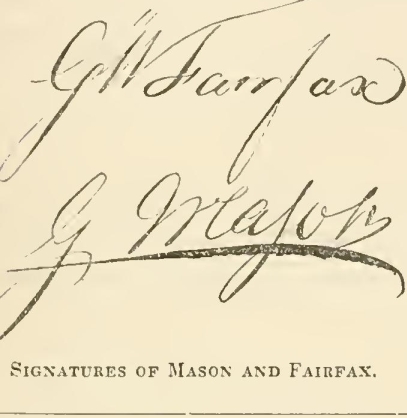 G W Fairfax
G Mason
SIGNATURES OF MASON AND FAIRFAX.